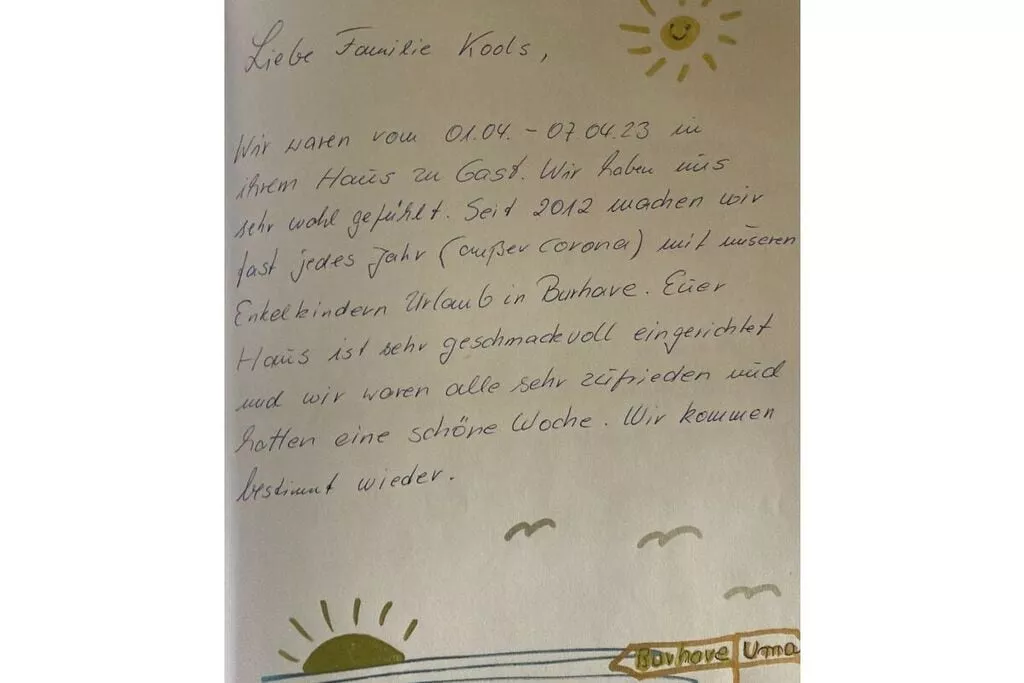 Liebe Familie Kools,
Wir waren vom 01.04. - 07.04.23 in
ihrem Haus zu Gast. Wir haben uns
sehr wohl gefühlt. Seit 2012 machen wir
fast jedes Jahr (außer Corona) mit unseren
Enkelkindern Urlaub in Burhave. Euer
Haus ist sehr geschmackvoll eingerichtet
und wir waren alle sehr zufrieden und
hatten eine schöne Woche. Wir kommen
bestimmt wieder.
Burhave Unna